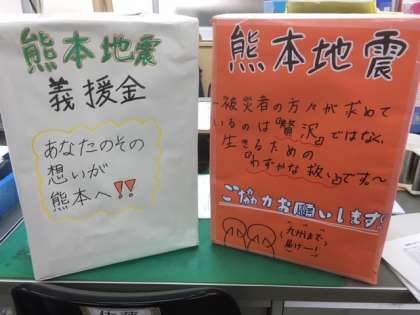 熊本地震
義援金
あなたのその
想いが
熊本へ!!
熊本地震
~被災者の方々が求めて
いるのは『贅沢』ではなく、
生きるための
『わずかな救い』です~
ご協力お願いします!
九州まで
届けー!